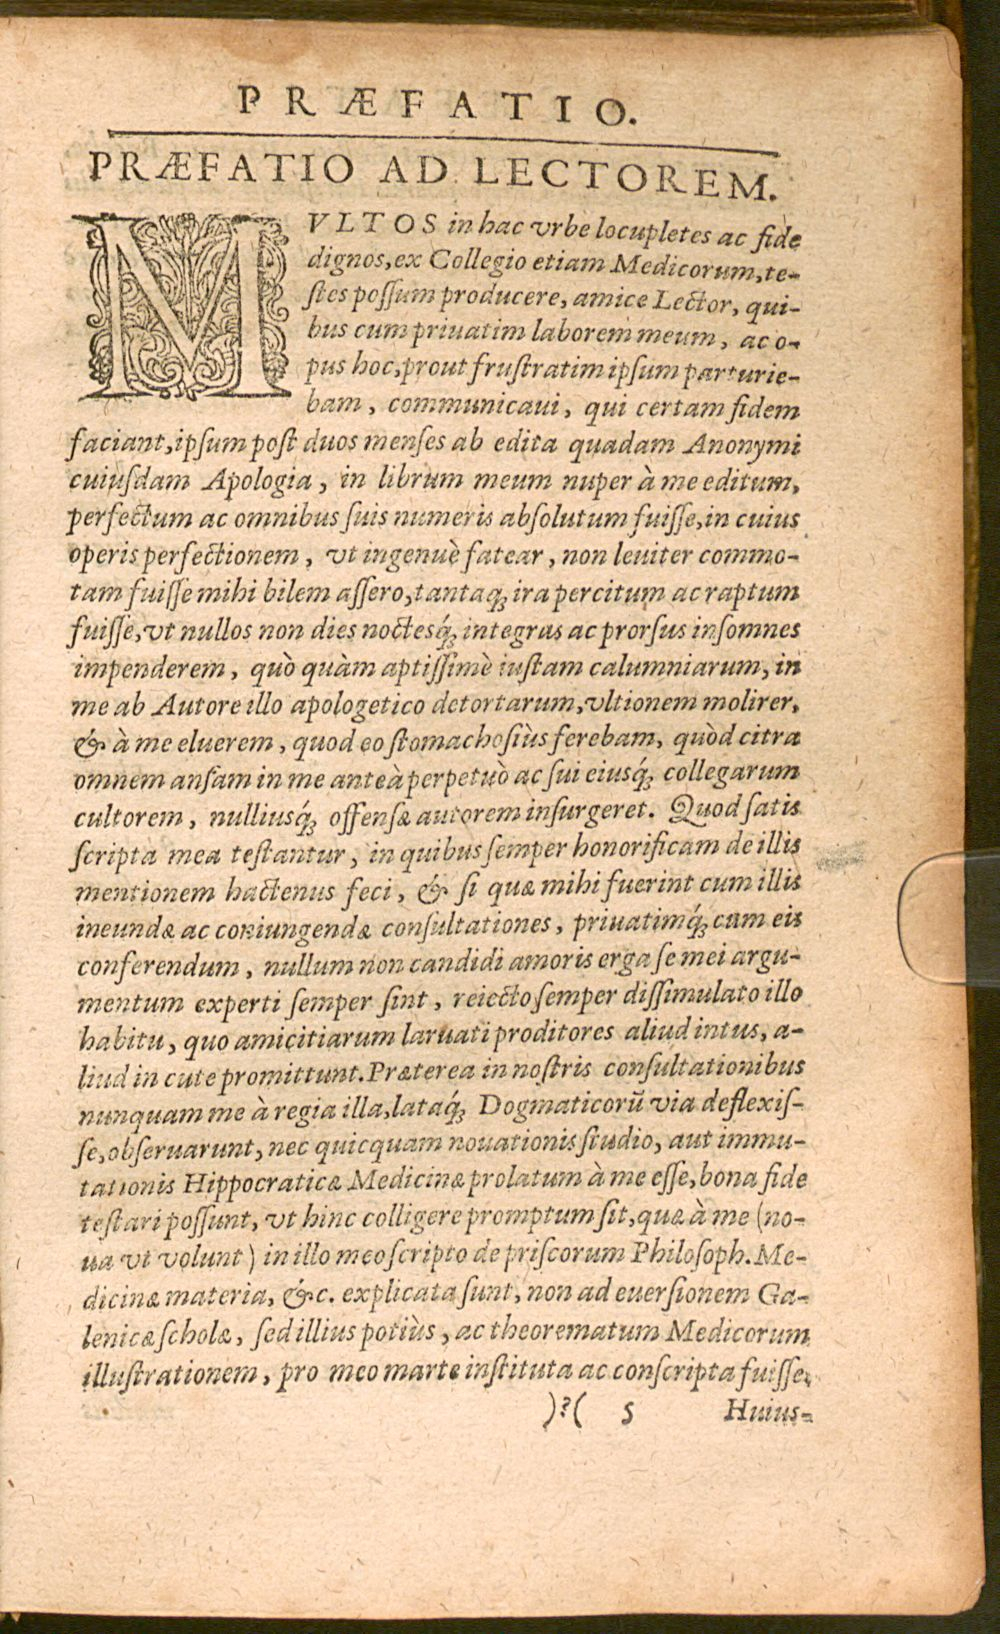 PRÆFATIO.
PRÆFATIO AD LECTOREM.
MVLTOS in hac vrbe locupletes ac fide
dignos, ex Collegio etiam Medicorum, te-
ſtes poſſum producere, amice Lector, qui-
bus cum priuatim laborem meum, ac o-
pus hoc, prout fruſtratim ipſum parturie-
bam, communicaui, qui certam fidem
faciant, ipſum poſt duos menſes ab edita quadam Anonymi
cuiuſdam Apologia, in librum meum nuper à me editum,
perfectum ac omnibus ſuis numeris abſolutum fuiſſe, in cuius
operis perfectionem, vt ingenuè fatear, non leuiter commo-
tam fuiſſe mihi bilem aſſero, tantaq́; ira percitum ac raptum
fuiſſe, vt nullos non dies noctesq́; integras ac prorſus inſomnes
impenderem, quò quàm aptiſſimè iuſtam calumniarum, in
me ab Autore illo apologetico detortarum, vltionem molirer,
& à me eluerem, quod eo ſtomachoſiùs ferebam, quòd citra
omnem anſam in me anteà perpetuò ac ſui eiusq́; collegarum
cultorem, nulliusq́; offenſæ autorem inſurgeret. Quod ſatis
ſcripta mea teſtantur, in quibus ſemper honorificam de illis
mentionem hactenus feci, & ſi quæ mihi fuerint cum illis
ineundæ ac coniungendæ conſultationes, priuatimq́; cum eis
conferendum, nullum non candidi amoris erga ſe mei argu-
mentum experti ſemper ſint, reiecto ſemper diſſimulato illo
habitu, quo amicitiarum laruati proditores aliud intus, a-
liud in cute promittunt. Præterea in noſtris conſultationibus
nunquam me à regia illa, lataq́; Dogmaticorū via deflexiſ-
ſe, obſeruarunt, nec quicquam nouationis ſtudio, aut immu-
tationis Hippocraticæ Medicinæ prolatum à me eſſe, bona fide
teſtari poſſunt, vt hinc colligere promptum ſit, quæ à me (no-
ua vt volunt) in illo meo ſcripto de priſcorum Philoſoph. Me-
dicinæ materia, &c. explicata ſunt, non ad euerſionem Ga-
lenicæ ſcholæ, ſed illius potiùs, ac theorematum Medicorum
illuſtrationem, pro meo marte inſtituta ac conſcripta fuiſſe.
)?( 5 Huius-